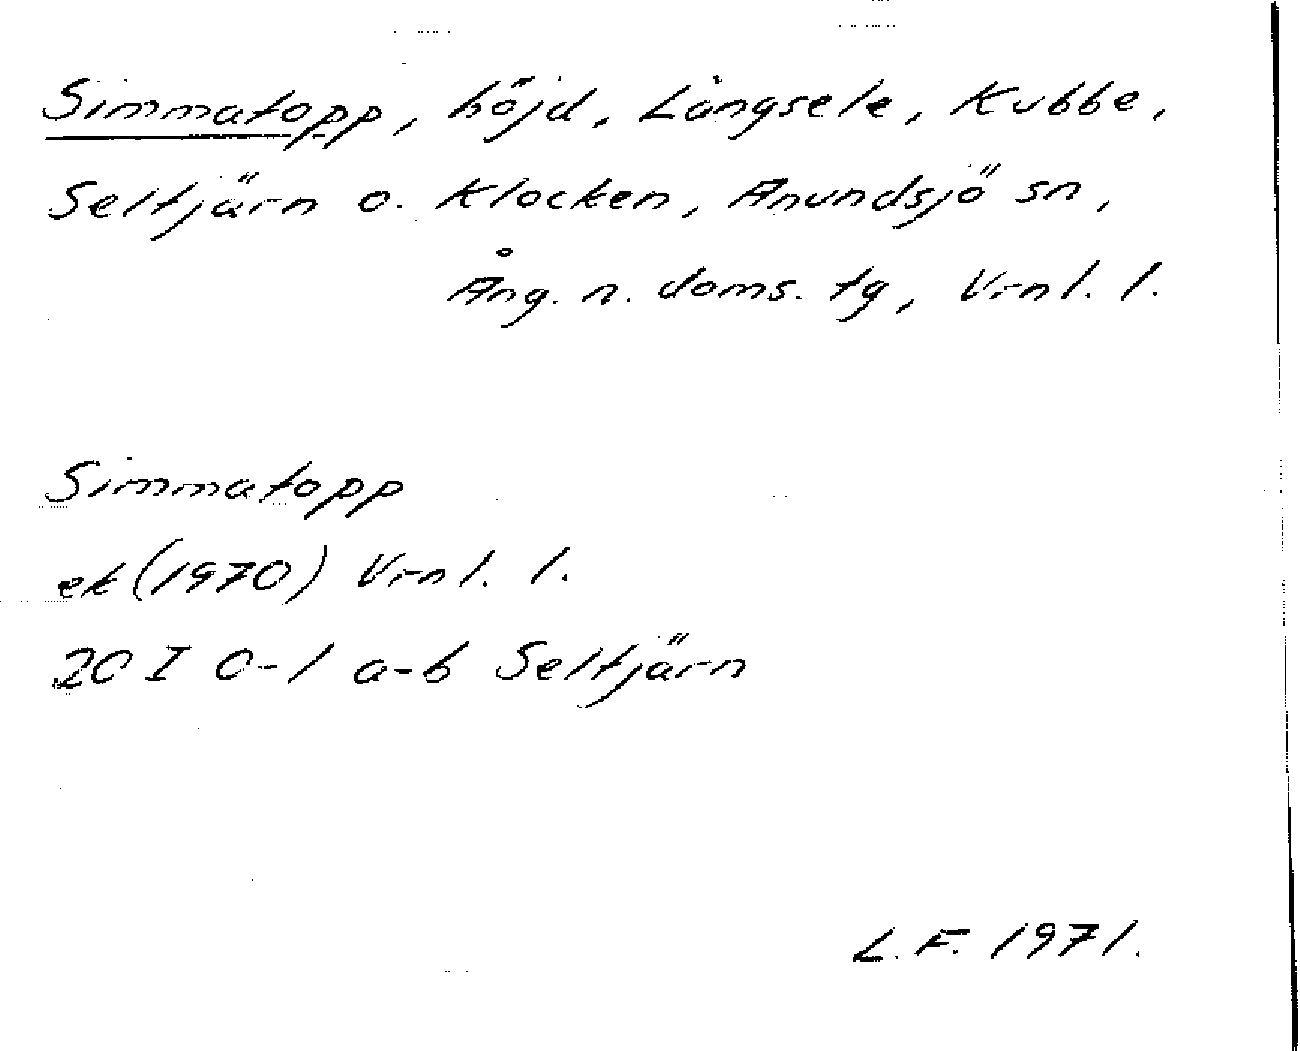 Simmatopp, höjd, Långsele, Kubbe,
Seltjärn o. Klocken, Anundsjö sn,
Ång. n. doms. tg, Vrnl. l.
Simmatopp
ek (1970) Vrnl. l.
20 I 0-1 a-b Seltjärn
L. F. 1971.